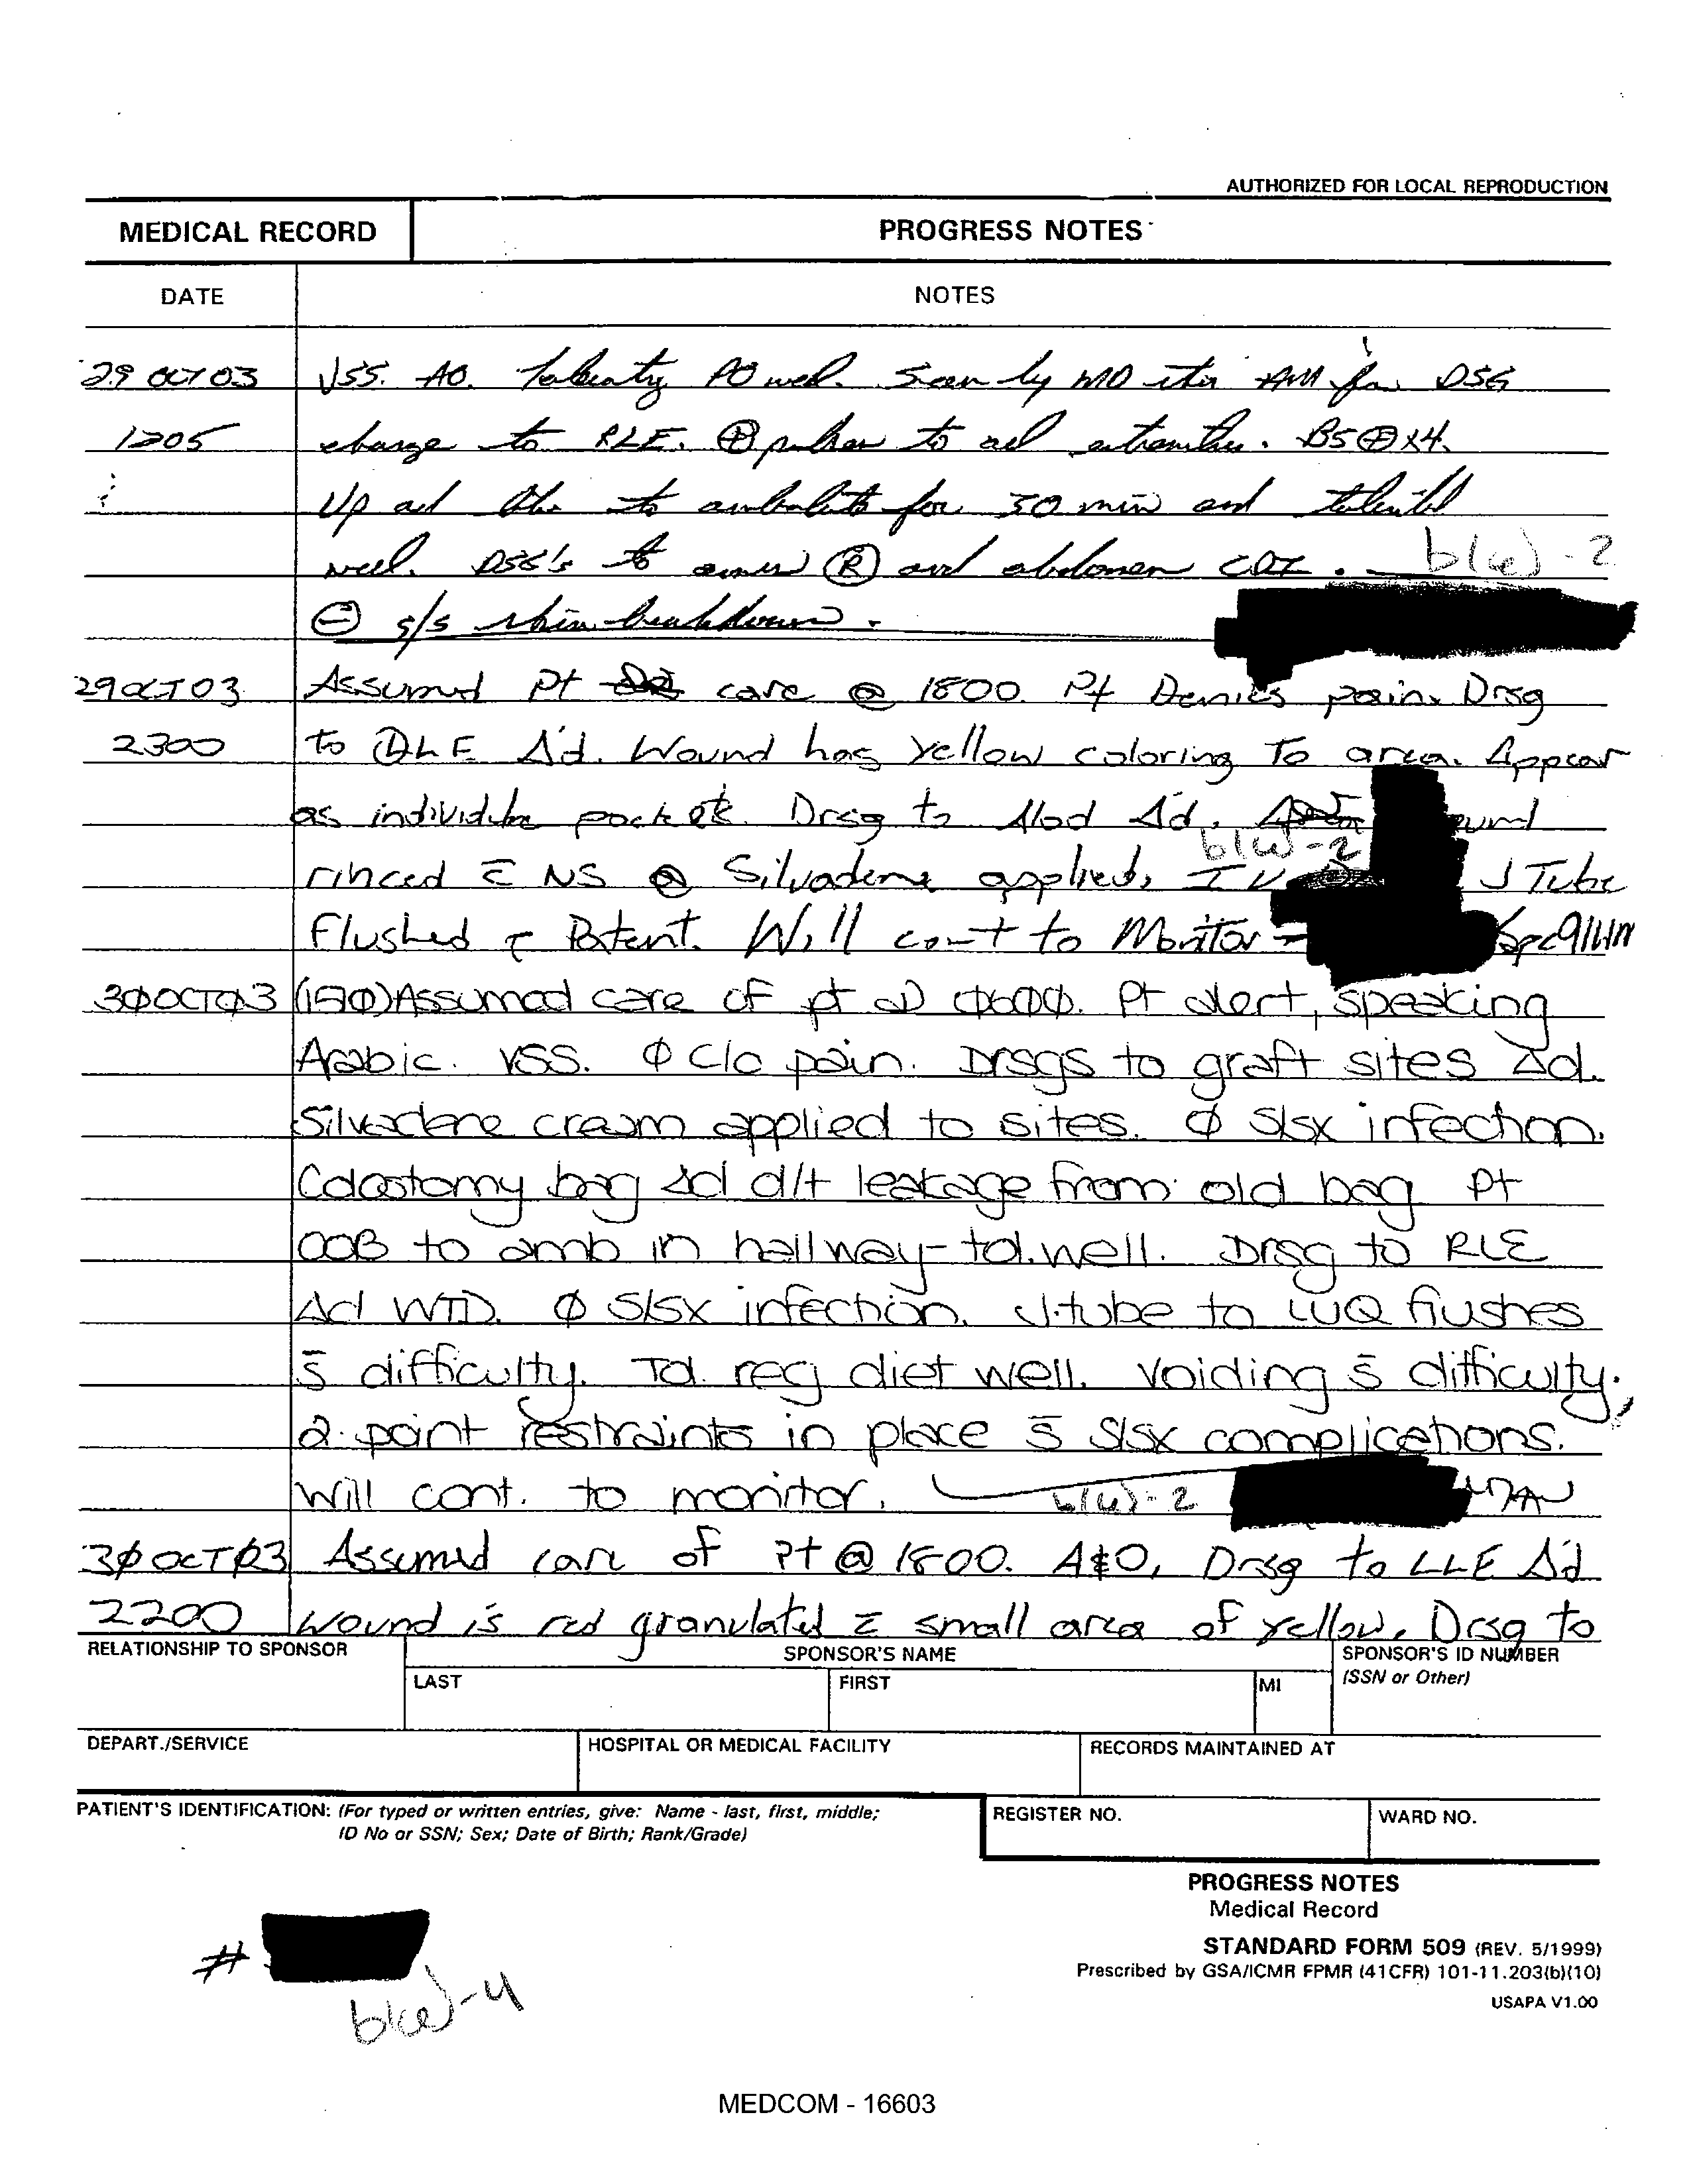 AUTHORIZED FOR LOCAL REPRODUCTION
MEDICAL RECORD
PROGRESS NOTES
DATE
NOTES
29 OCT 03 VSS. AO. PO well. Seen by MD AM for DSG
1205 change to RLE. ⊕ pulses to all extremities. BS ⊕ x4.
Up ad lib to ambulate for 30 min and
well. DSG's to R and abdomen CDI. b(6)-2
⊖ s/s skin breakdown.
29 OCT 03 Assumed pt care @ 1800. Pt Denies pain. Drsg
2300 to LE Δ'd. Wound has yellow coloring To area. Appear
as pockets. Drsg to Abd Δ'd.
b(6)-2
rinced c̄ NS Silvadene applied. IV J Tube
Flushed Patent. Will cont to Monitor Spc 91WM
3∅ OCT ∅3 Assumed care of pt @ ∅6∅∅. Pt alert, speaking
Arabic. VSS. ∅ c/o pain. Drsgs to graft sites Δd.
Silvadene cream applied to sites. ∅ S/sx infection.
Colostomy bag Δd d/t leakage from old bag Pt
OOB to amb in hallway - tol. well. Drsg to RLE
Δd WTD. ∅ S/Sx infection. J-tube to LUQ flushes
s̄ difficulty. Tol. reg diet well. Voiding s̄ difficulty.
2-point restraints in place s̄ S/Sx complications.
Will cont. to monitor. b(6)-2
3∅ OCT ∅3 Assumed care of Pt @ 1800. A&O, Drsg to LLE Δ'd
2200 Wound is red granulated c̄ small area of yellow. Drsg to
RELATIONSHIP TO SPONSOR
SPONSOR'S NAME
SPONSOR'S ID NUMBER
(SSN or Other)
LAST
FIRST
MI
DEPART./SERVICE
HOSPITAL OR MEDICAL FACILITY
RECORDS MAINTAINED AT
PATIENT'S IDENTIFICATION: (For typed or written entries, give: Name - last, first, middle;
ID No or SSN; Sex; Date of Birth; Rank/Grade)
REGISTER NO.
WARD NO.
PROGRESS NOTES
Medical Record
STANDARD FORM 509 (REV. 5/1999)
Prescribed by GSA/ICMR FPMR (41CFR) 101-11.203(b)(10)
USAPA V1.00
#
b(6)-4
MEDCOM - 16603